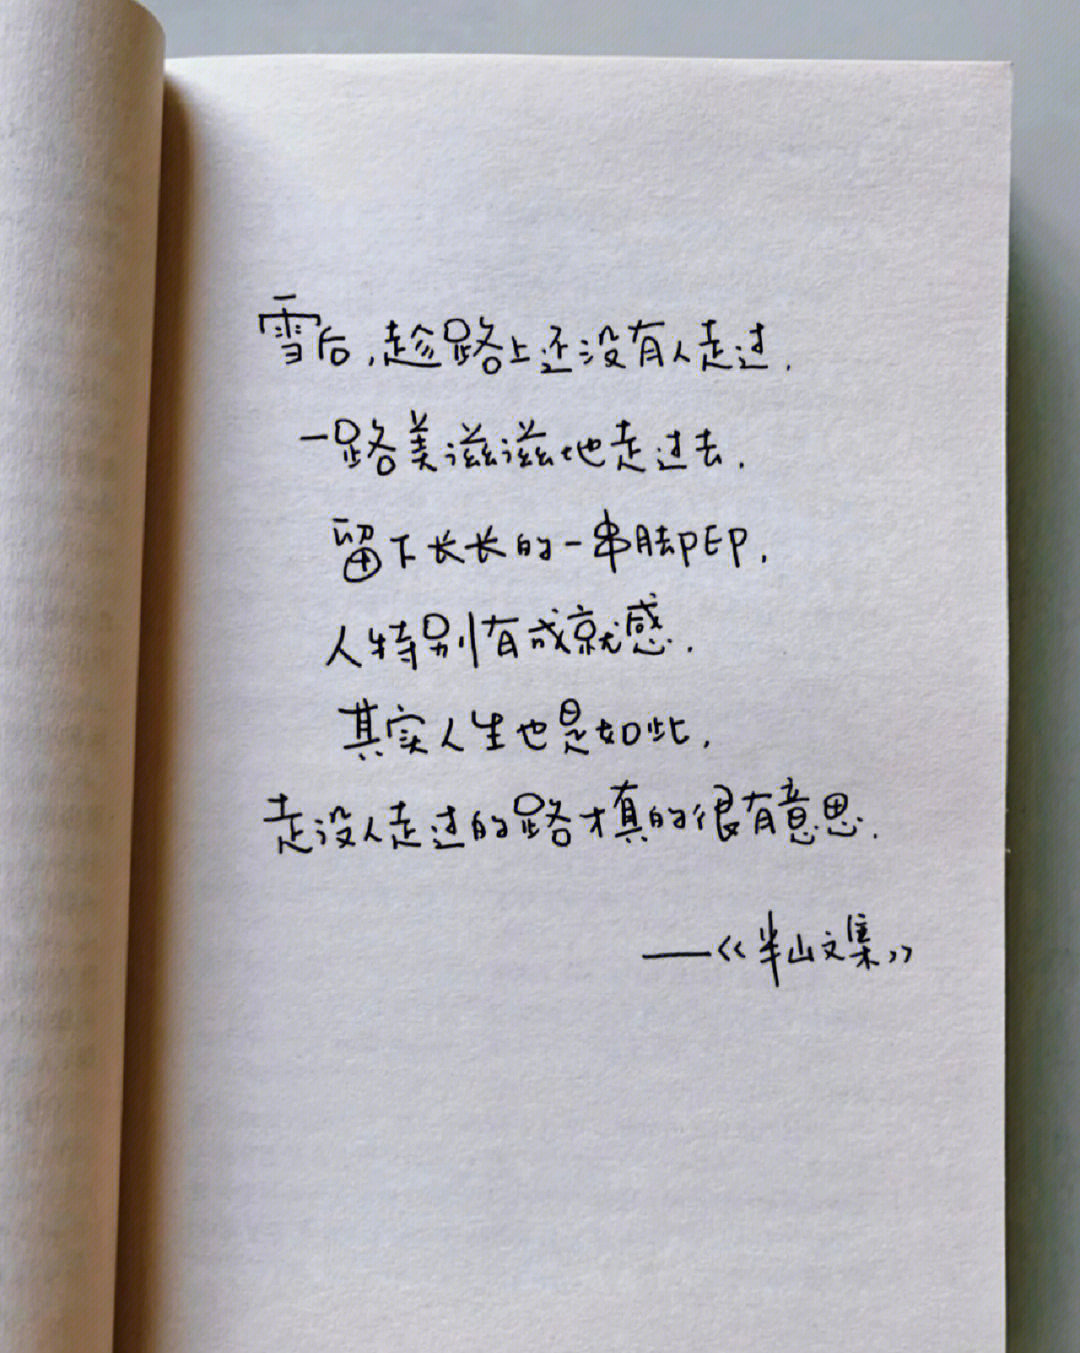 雪后,趁路上还没有人走过.
一路美滋滋地走过去.
留下长长的一串脚印,
人特别有成就感.
其实人生也是如此,
走没人走过的路才真的很有意思.
——《半山文集》